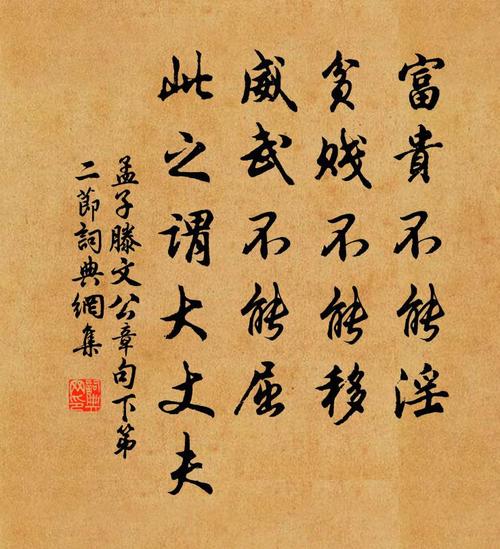 富貴不能淫
貧賤不能移
威武不能屈
此之謂大丈夫
孟子滕文公章句下第
二節詞典網集